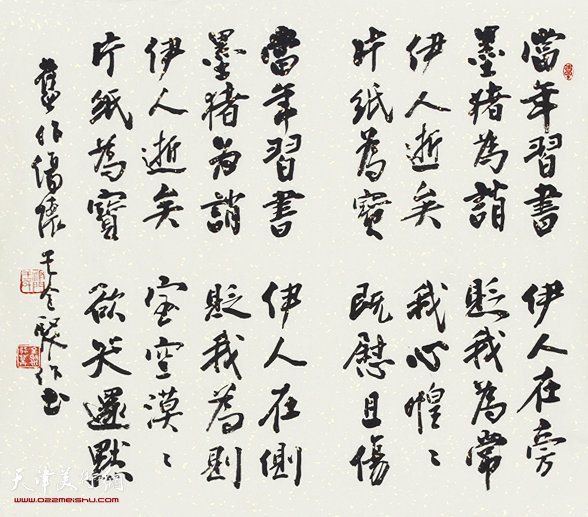 當年習書 伊人在旁
墨猪為誚 貶我為常
伊人逝矣 我心惶〻
片紙為寶 既慰且傷
當年習書 伊人在側
墨猪为誚 貶我為則
伊人逝矣 室空漠〻
片紙為寶 欲哭還默
舊作傷懷 王全聚作书
天津美术网
www.022meishu.com